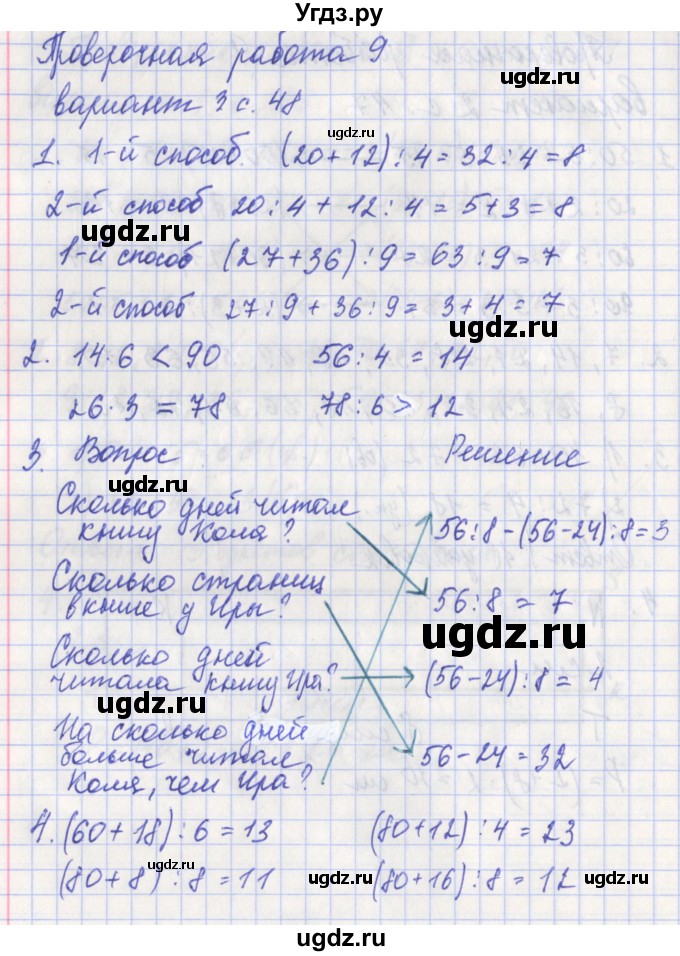 Угдз.ру
Проверочная работа 9
вариант 3 с. 48
1. 1-й способ (20+12):4=32:4=8
2-й способ 20:4+12:4=5+3=8
1-й способ (27+36):9=63:9=7
2-й способ 27:9+36:9=3+4=7
2. 14·6<90 56:4=14
26·3=78 78:6>12
3. Вопрос Решение
Сколько дней читал
книгу Коля?
56:8-(56-24):8=3
Сколько страниц
в книге у Иры?
56:8=7
Сколько дней
читала книгу Ира?
(56-24):8=4
На сколько дней
больше читал
Коля, чем Ира?
56-24=32
4. (60+18):6=13 (80+12):4=23
(80+8):8=11 (80+16):8=12
ugdz.ru
ugdz.ru
ugdz.ru
ugdz.ru
ugdz.ru
ugdz.ru
ugdz.ru
ugdz.ru
ugdz.ru
ugdz.ru
ugdz.ru
ugdz.ru
ugdz.ru